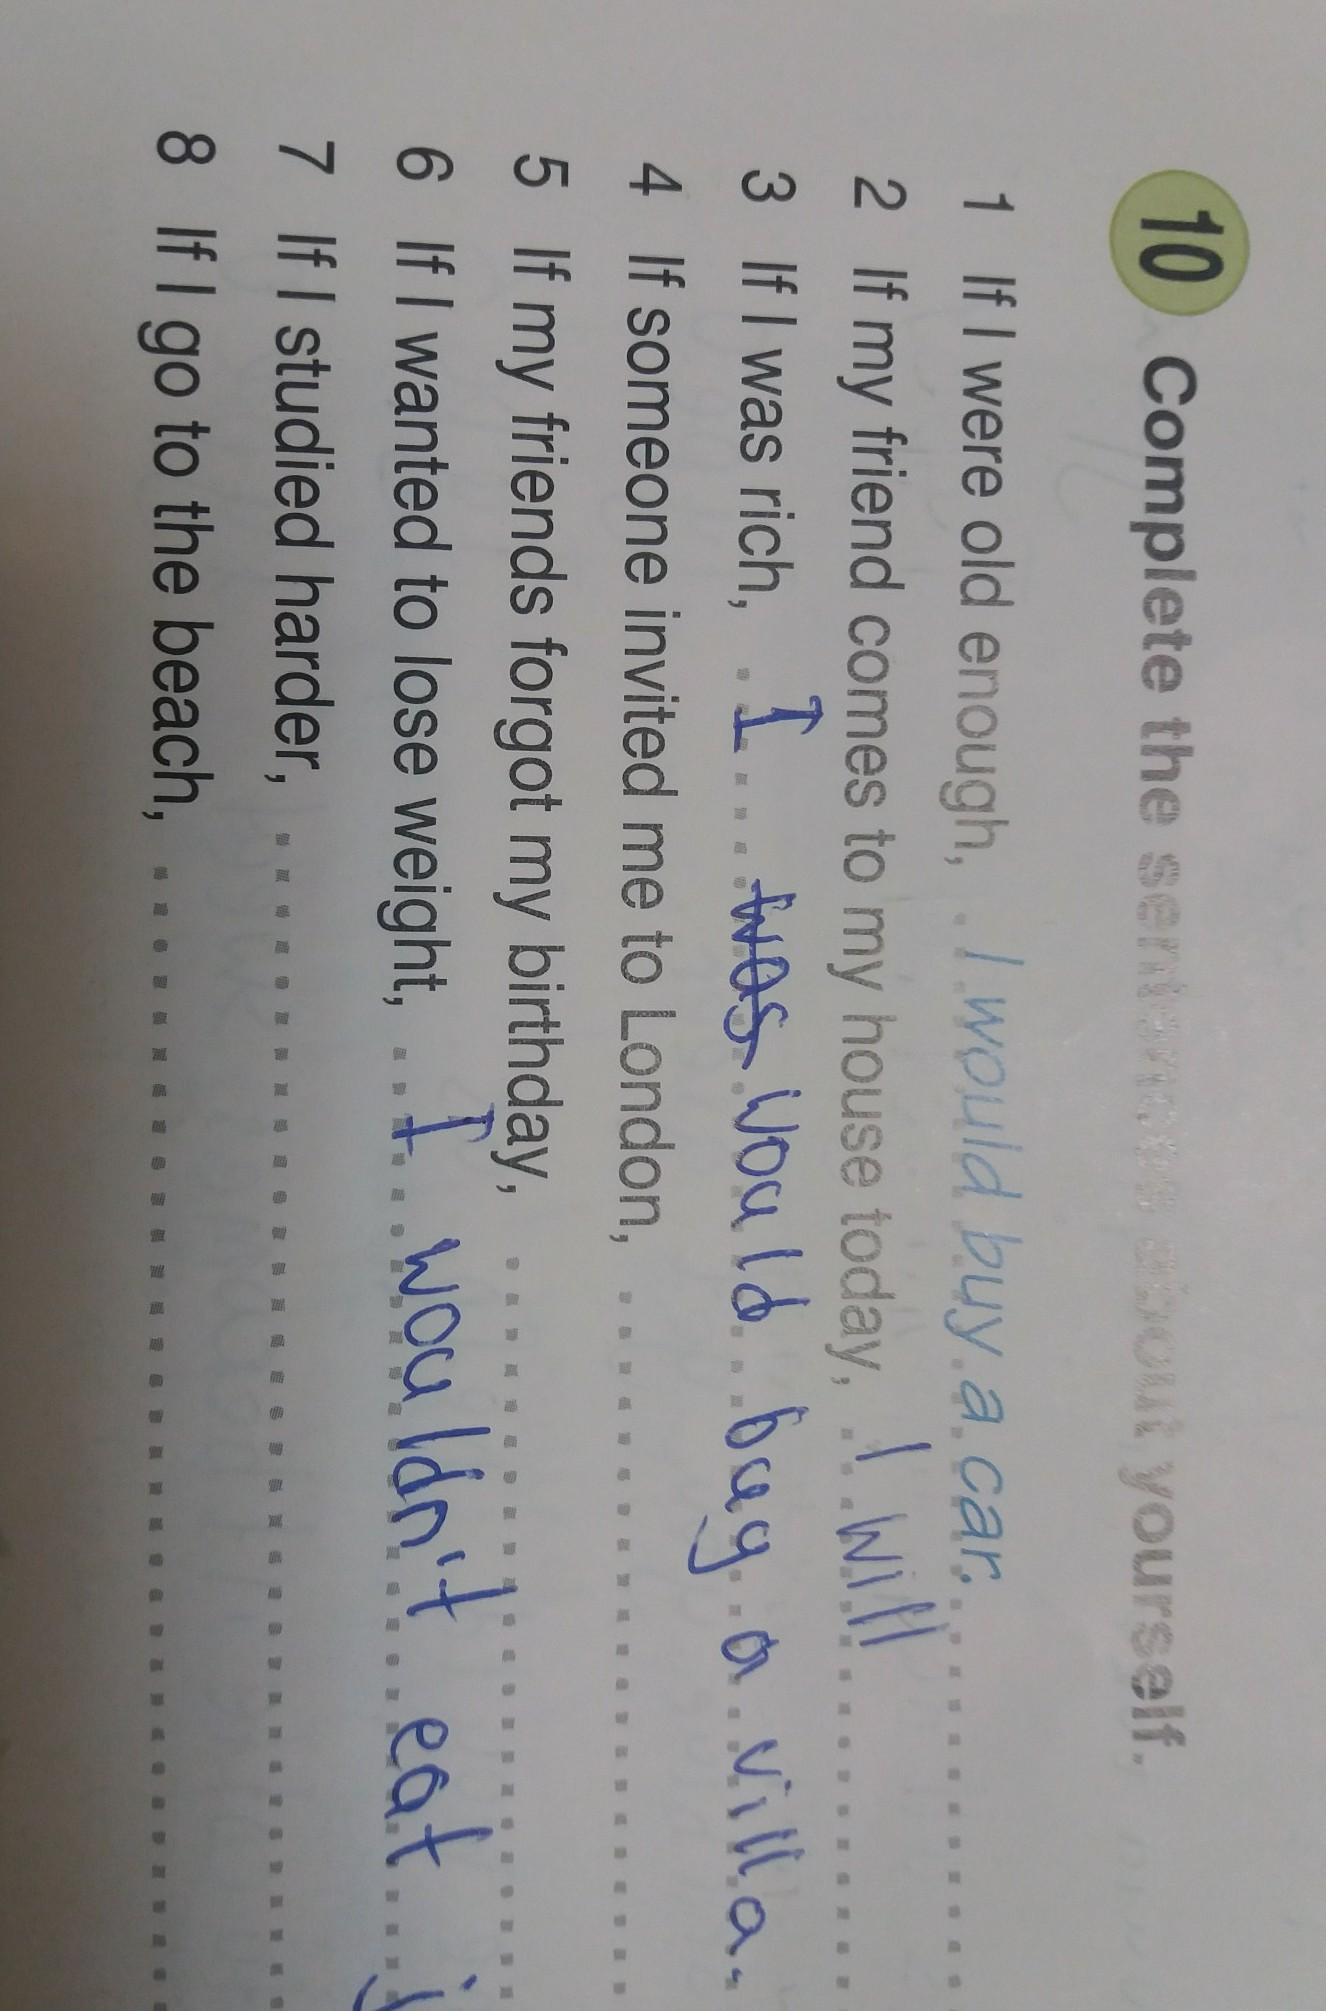 10 Complete the sentences about yourself.
1 If I were old enough, I would buy a car.
2 If my friend comes to my house today, I will
3 If I was rich, I was would buy a villa.
4 If someone invited me to London,
5 If my friends forgot my birthday,
6 If I wanted to lose weight, I wouldn't eat j
7 If I studied harder,
8 If I go to the beach,